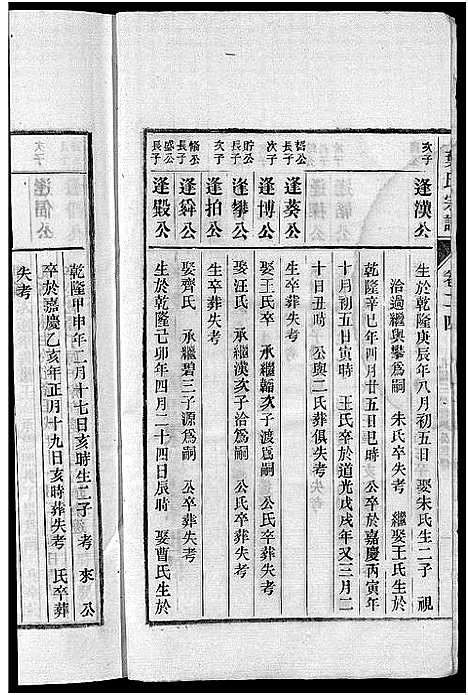 氏宗譜
卷二十四
次子
逢漢公
生於乾隆庚辰年八月初五日 娶朱氏生二子 視
洽過繼與攀爲嗣 朱氏卒失考 繼娶王氏生於
乾隆辛巳年四月廿五日巳時 公卒於嘉慶丙寅年
十月初五日寅時 王氏卒於道光戊戌年又三月二
十日丑時 公與二氏葬俱失考
長子
逢葵公
生卒葬失考
次子
逢博公
娶王氏 承繼韜次子渡爲嗣 公氏卒葬失考
貯公
長子
逢攀公
娶汪氏 承繼漢次子洽爲嗣 公氏卒葬失考
次子
逢拍公
生卒葬失考
盛公
長子
逢舜公
娶齊氏 承繼碧三子源爲嗣 公卒葬失考
長子
逢殿公
生於乾隆己卯年四月二十四日辰時 娶曹氏生於
乾隆甲申年二月十七日亥時生二子 考 來 公
卒於嘉慶乙亥年正月十九日亥時葬失考 氏卒葬
失考
次子
逢佋公